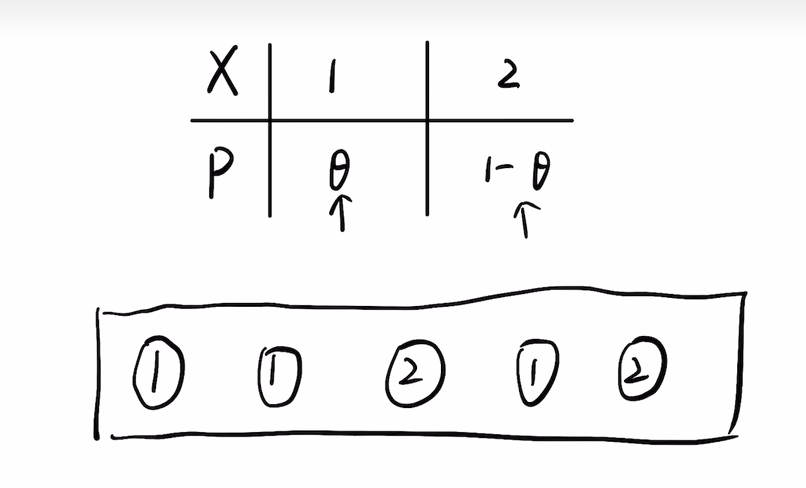 X 1 2
P θ 1-θ
1 1 2 1 2